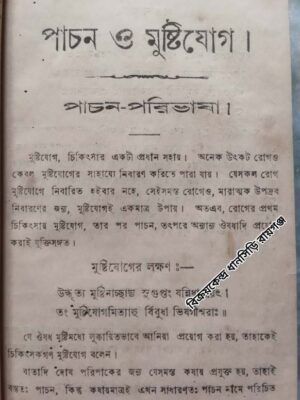 পাচন ও মুষ্টিযোগ।
পাচন-পরিভাষা।
মুষ্টিযোগ, চিকিৎসার একটা প্রধান সহায়। অনেক উৎকট রোগও
কেবল মুষ্টিযোগের সাহায্যে নিবারণ করিতে পারা যায়। যেসকল রোগ
মুষ্টিযোগে নিবারিত হইবার নহে, সেইসমস্ত রোগেও, মারাত্মক উপদ্রব
নিবারণের জন্য, মুষ্টিযোগই একমাত্র উপায়। অতএব, রোগের প্রথম
চিকিৎসায় মুষ্টিযোগ, তার পর পাচন, তৎপরে অন্যান্য ঔষধাদি
করাই যুক্তিসঙ্গত।
মুষ্টিযোগের লক্ষণ :—
তং মুষ্টিযোগমিত্যাহু র্বিবুধা ভিষগীশ্বরাঃ॥
যে ঔষধ মুষ্টিমধ্যে লুক্কায়িতভাবে আনিয়া প্রয়োগ করা হয়, তাহাকেই
চিকিৎসকগণ মুষ্টিযোগ বলেন।
বাতাদি দোষ পরিপাকের জন্য যেসমস্ত কষায় প্রযুক্ত হয়, তাহাই
বস্তুতঃ পাচন, কিন্তু কষায়মাত্রই এখন সাধারণতঃ পাচন নামে পরিচিত
বিক্রয়কেন্দ্র ধানসিড়ি রায়গঞ্জ